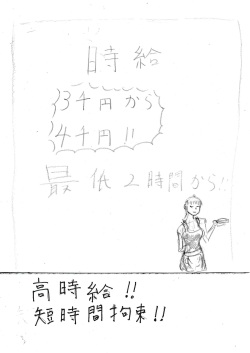 時給
3千円から
4千円!!
最低2時間から!!
高時給!!
短時間拘束!!